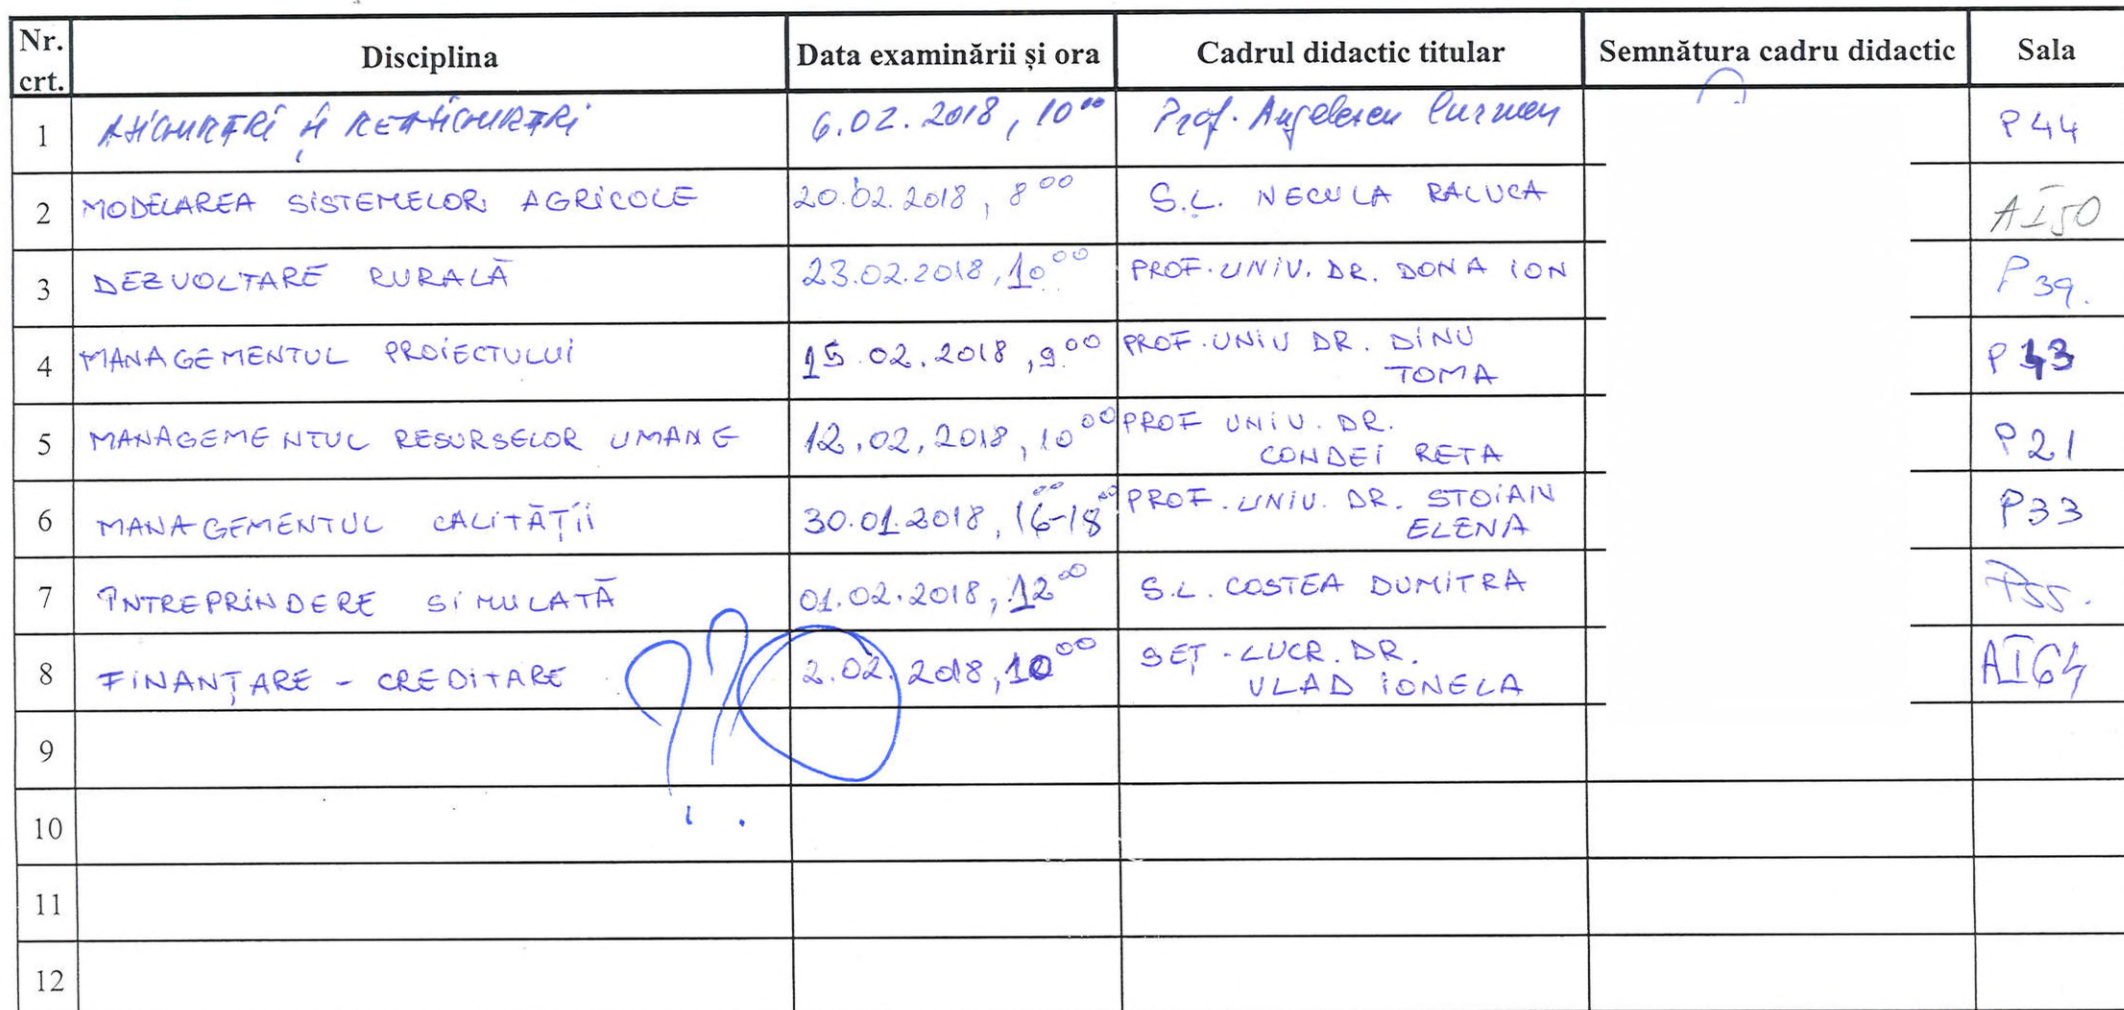 Nr. crt. Disciplina Data examinării și ora Cadrul didactic titular Semnătura cadru didactic Sala
1 ASIGURĂRI ȘI REASIGURĂRI 6.02.2018, 10⁰⁰ Prof. Angelescu Carmen P44
2 MODELAREA SISTEMELOR AGRICOLE 20.02.2018, 8⁰⁰ S.L. NECULA RALUCA AI50
3 DEZVOLTARE RURALĂ 23.02.2018, 10⁰⁰ PROF. UNIV. DR. DONA ION P39.
4 MANAGEMENTUL PROIECTULUI 15.02.2018, 9⁰⁰ PROF. UNIV DR. DINU TOMA P43
5 MANAGEMENTUL RESURSELOR UMANE 12.02.2018, 10⁰⁰ PROF UNIV. DR. CONDEI RETA P21
6 MANAGEMENTUL CALITĂȚII 30.01.2018, 16⁰⁰-18⁰⁰ PROF. UNIV. DR. STOIAN ELENA P33
7 ÎNTREPRINDERE SIMULATĂ 01.02.2018, 12⁰⁰ S.L. COSTEA DUMITRA P55.
8 FINANȚARE - CREDITARE ?? 2.02.2018, 10⁰⁰ ȘEF. LUCR. DR. VLAD IONELA AI64
9
10
11
12